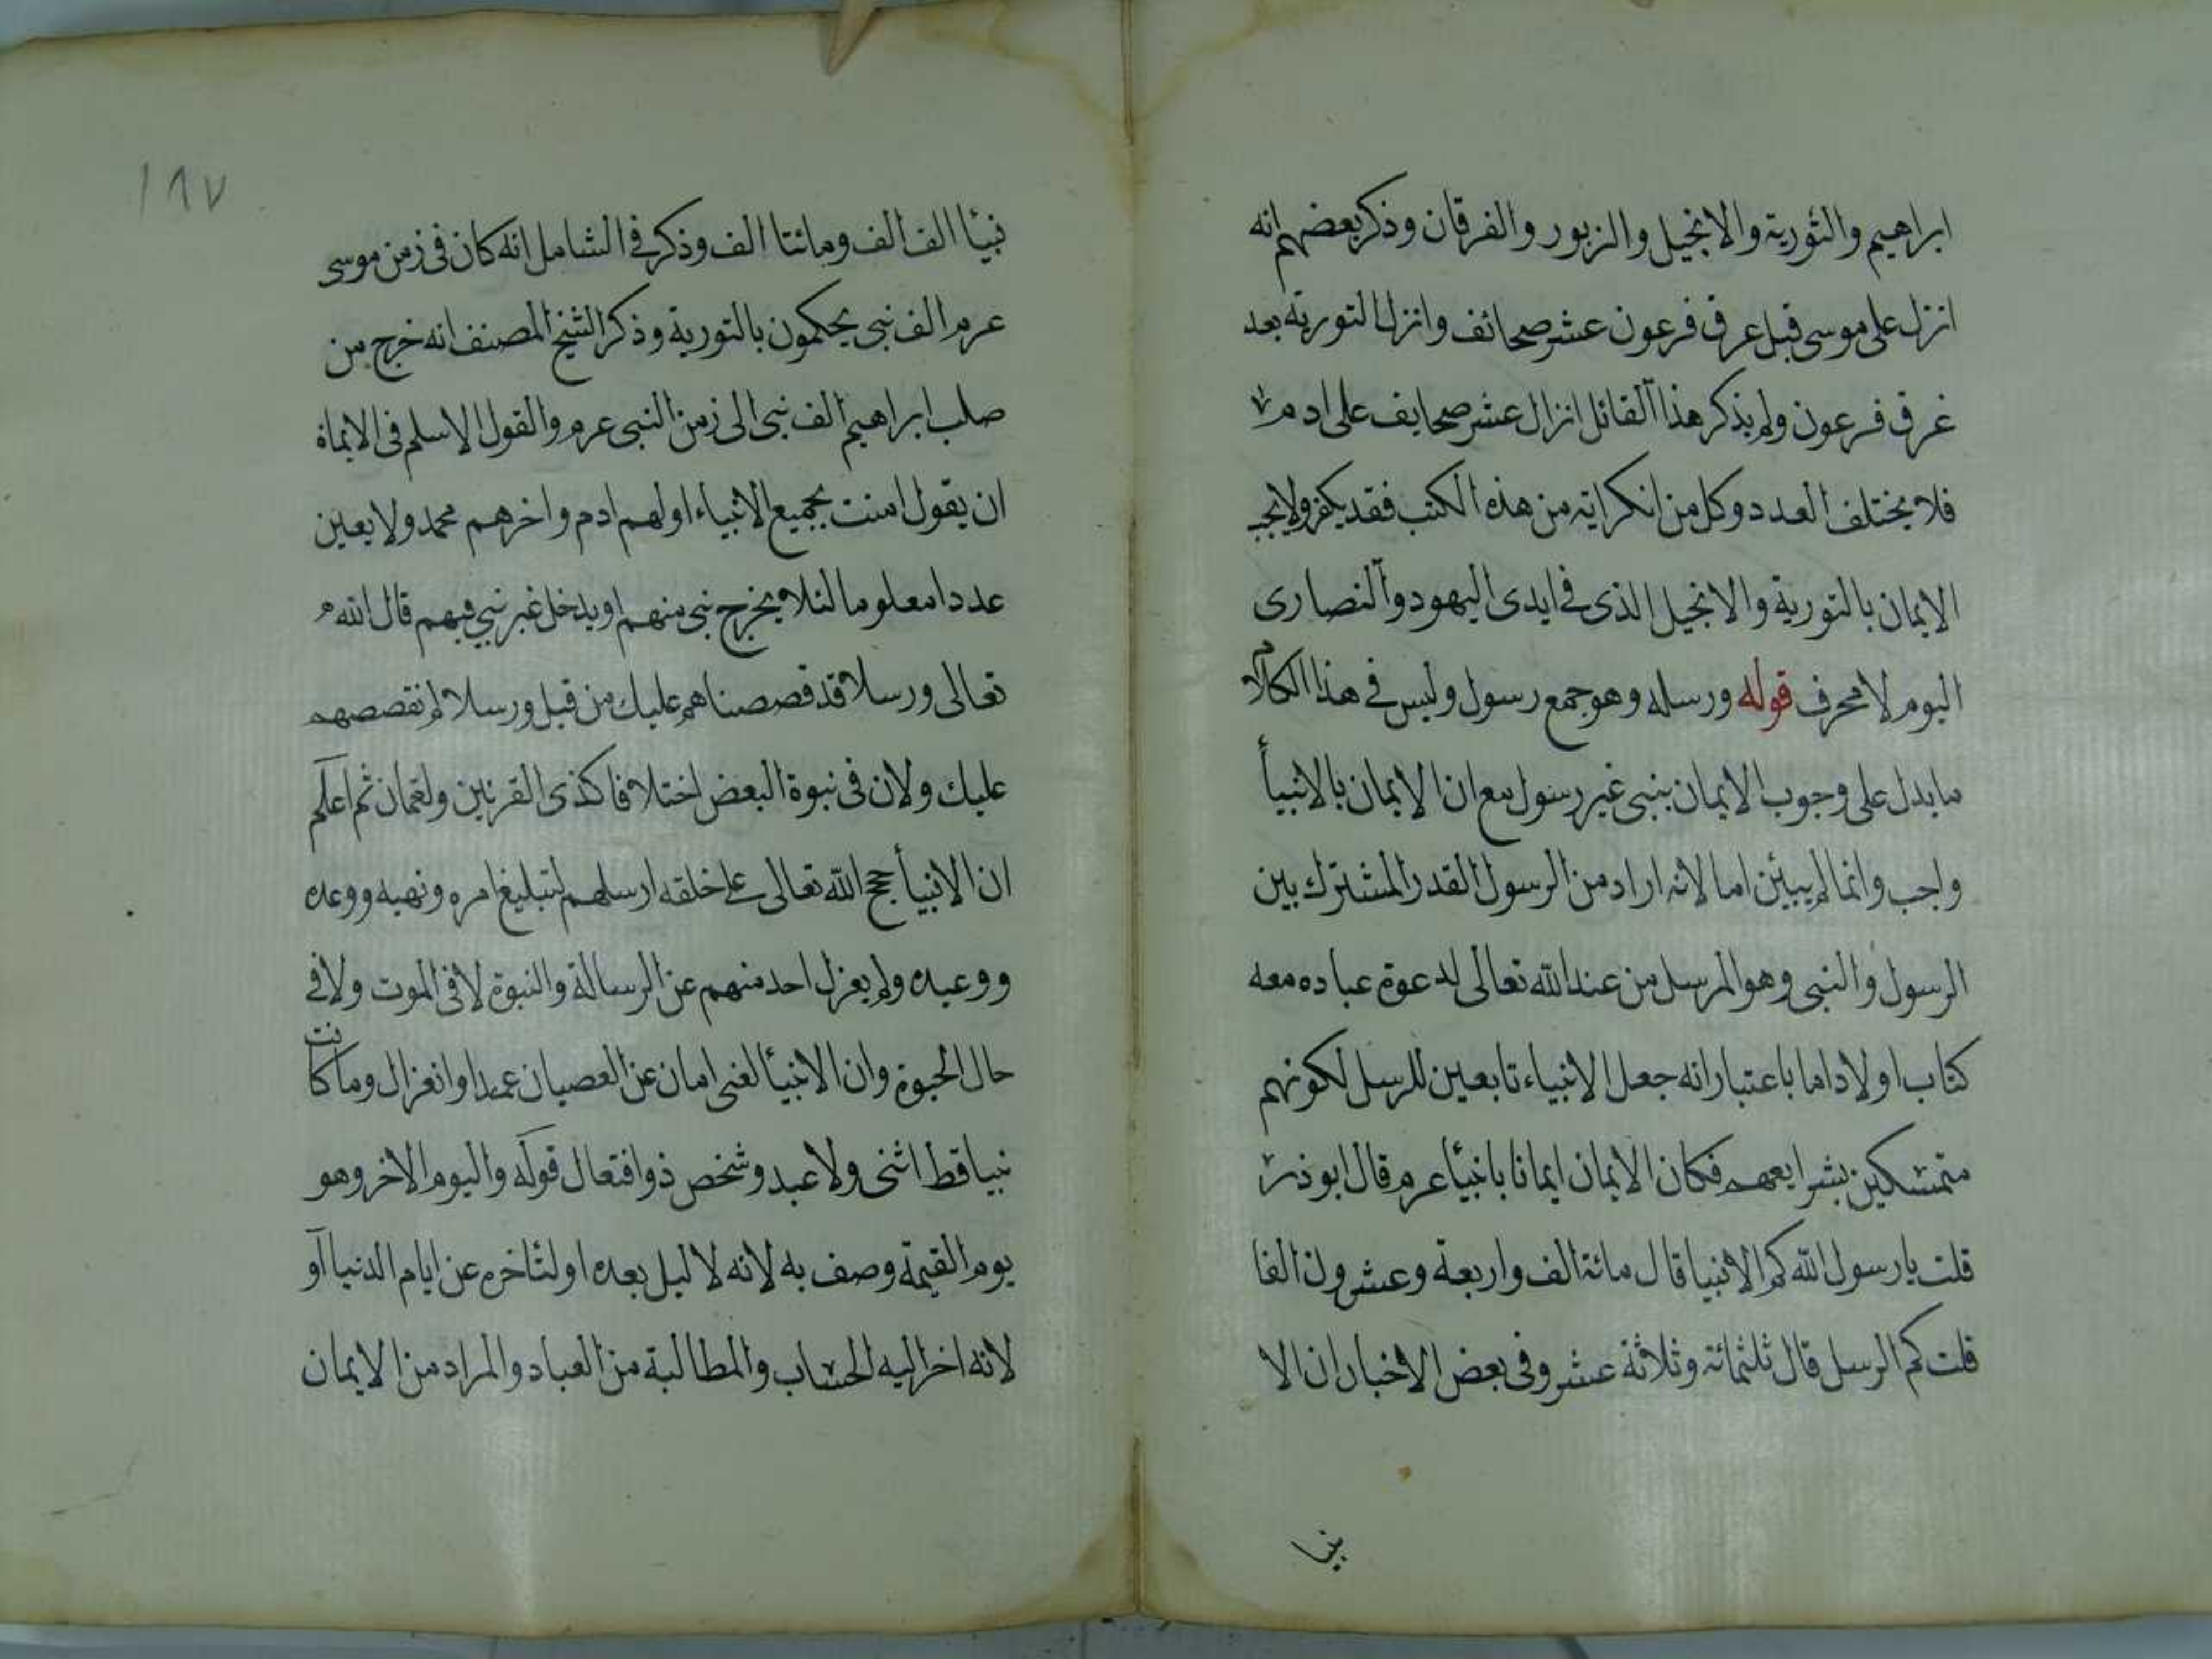 ابراهيم والتورية والانجيل والزبور والفرقان وذكر بعضهم انه
انزل على موسى قبل غرق فرعون عشر صحائف وانزل التورية بعد
غرق فرعون ولم يذكر هذا القائل انزال عشر صحايف على ادم
فلا يختلف العدد وكل من انكر اية من هذه الكتب فقد يكفر ولا يجب
الايمان بالتورية والانجيل الذى فى ايدى اليهود والنصارى
اليوم لا محرف قوله ورسله وهو جمع رسول وليس فى هذا الكلام
ما يدل على وجوب الايمان بنبى غير رسول مع ان الايمان بالانبيأ
واجب وانما لم يبين اما لانه اراد من الرسول القدر المشترك بين
الرسول والنبى وهو المرسل من عند الله تعالى لدعوة عباده معه
كتاب اولا واما باعتبار انه جعل الانبياء تابعين للرسل لكونهم
متمسكين بشرايعهم فكان الايمان ايمانا بانبيأ عرم قال ابو ذر
قلت يا رسول الله كم الانبيا قال مائة الف واربعة وعشرون الفا
قلت كم الرسل قال ثلثمائة وثلاثة عشر وفى بعض الاخبار ان الا
نبيا
١٨٧
نبيأ الف الف ومائتا الف وذكر فى الشامل انه كان فى زمن موسى
عرم الف نبى يحكمون بالتورية وذكر الشيخ المصنف انه خرج من
صلب ابراهيم الف نبى الى زمن النبى عرم والقول الاسلم فى الايمان
ان يقول امنت بجميع الانبياء اولهم ادم واخرهم محمد ولا يعين
عددا معلوما لئلا يخرج نبى منهم او يدخل غير نبى فيهم قال الله
تعالى ورسلا قد قصصناهم عليك من قبل ورسلا لم نقصصهم
عليك ولان فى نبوة البعض اختلافا كذى القرنين ولقمان ثم اعلم
ان الانبيأ حجج الله تعالى على خلقه ارسلهم لتبليغ امره ونهيه ووعده
ووعيده ولم يعزل احد منهم عن الرسالة والنبوة لا فى الموت ولا فى
حال الحيوة وان الانبيأ لفى امان عن العصيان عمدا وانعزال وما كانت
نبيا قط انثى ولا عبد وشخص ذو افتعال قوله واليوم الاخر وهو
يوم القيمة وصف به لانه لا ليل بعده او لتأخره عن ايام الدنيا او
لانه اخر اليه الحساب والمطالبة من العباد والمراد من الايمان